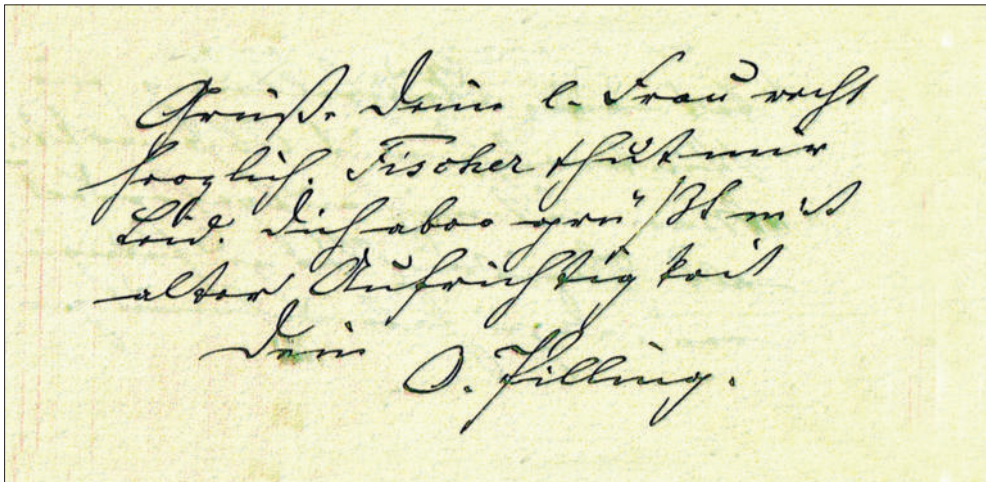 Grüße Deine l. Frau recht
herzlich. Fischer thut mir
Leid. Dich aber grüßt mit
alter Aufrichtigkeit
Dein
O. Pilling.